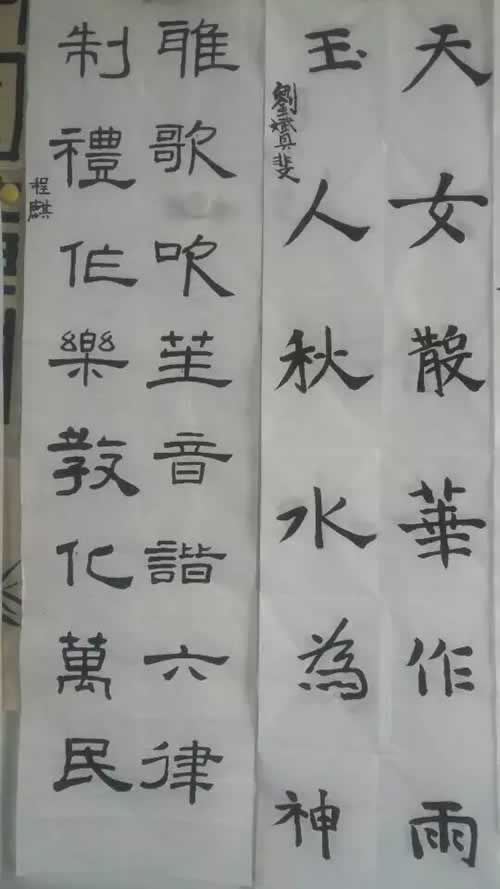 天女散華作雨
玉人秋水為神
劉贇斐
雅歌吹笙音諧六律
制禮作樂教化萬民
程麒